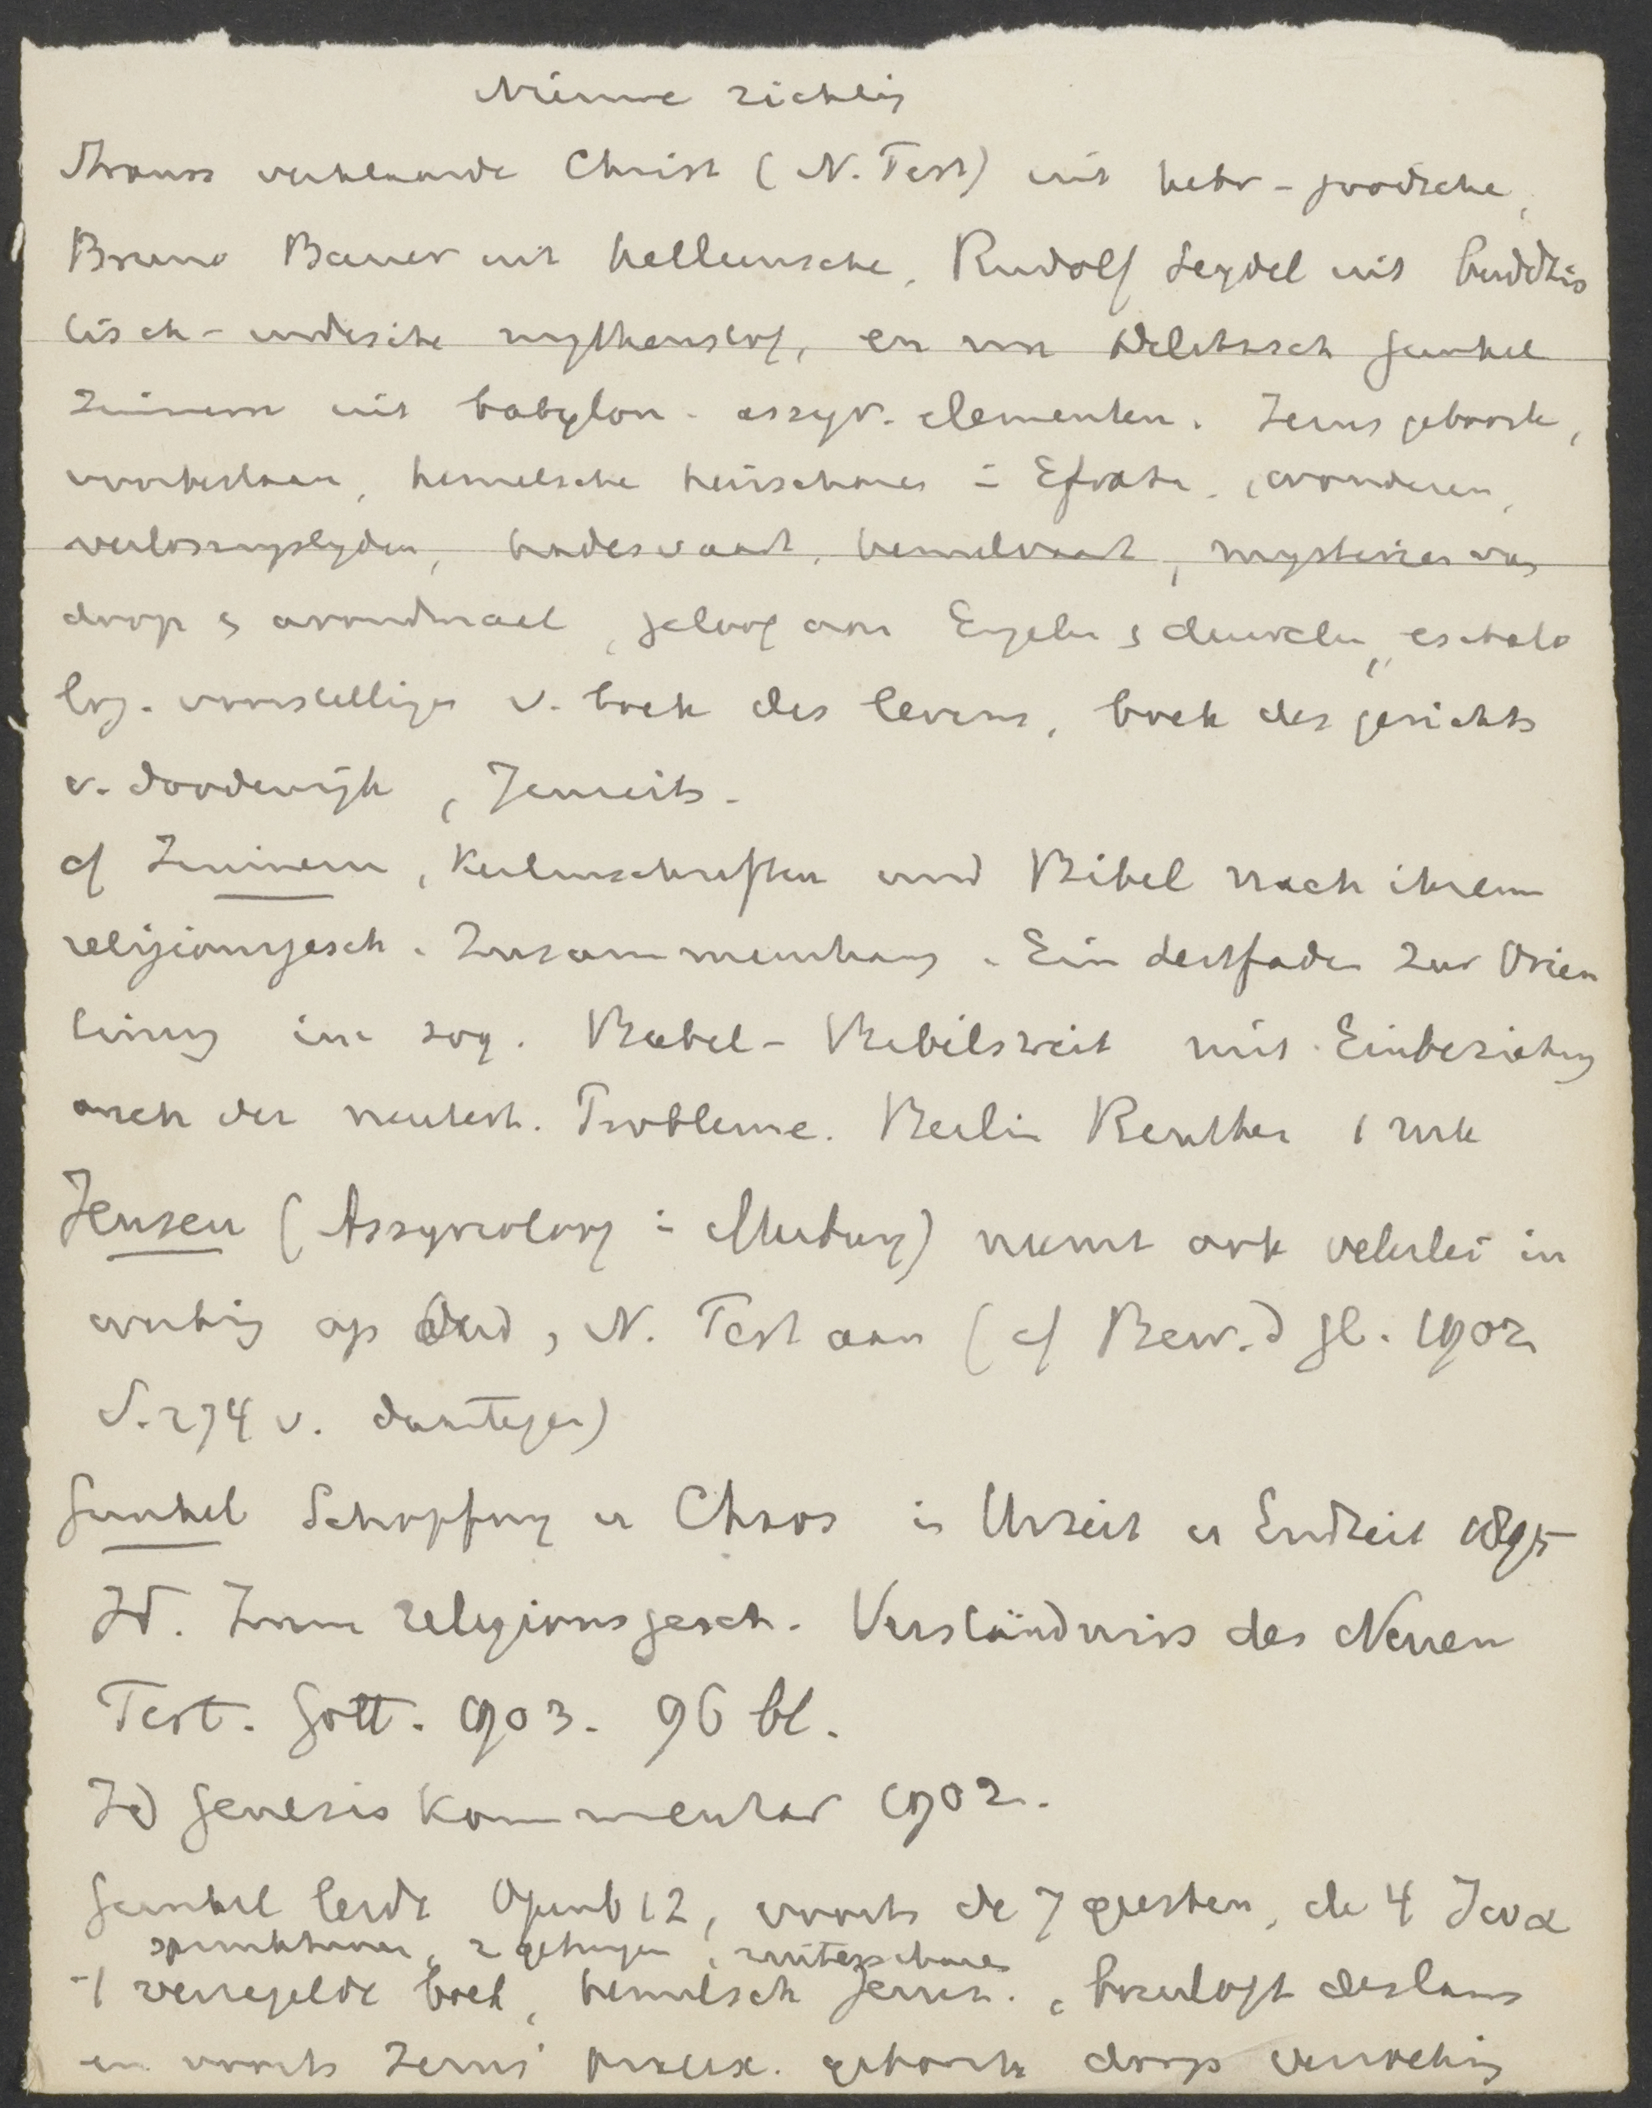 Nieuwe richting
Strauss verklaarde Christ (N. Test) uit hebr-joodsche,
Bruno Bauer uit helleensche, Rudolf Seydel uit buddhis
tisch-indische mythenstof, en nu Delitzsch Gunkel
Zimmern uit babylon-assyr. elementen. Jezus geboorte,
voorbestaan, hemelsche heirscharen in Efrata, wonderen,
verlossingslyden, hadesvaart, hemelvaart, mysterien van
doop & avondmael, geloof aan Engelen & duivelen, eschato
log. voorstellingen v. boek des levens, boek des gerichts
v. doodenrijk, Jenseits.
cf Zimmern, Keilinschriften und Bibel nach ihrem
religionsgesch. Zusammenhang. Ein Leitfaden zur Orien
tierung im sog. Babel-Bibelstreit mit Einbeziehung
auch der neutest. Probleme. Berlin Reuther 1 mk
Jensen (Assyrioloog in Marburg) neemt ook velerlei in
werking op Oud & N. Test aan (cf Bew. d gl. 1902
S. 274 v. daartegen)
Gunkel Schopfung u Chaos in Urzeit u Endzeit 1895
Id. Zum religionsgesch. Verständniss des Neuen
Test. Gött. 1903. 96 bl.
Id Genesis Kommentar 1902.
Gunkel leidt Openb 12, voorts de 7 geesten, de 4
sprinkhanen, 2 getuigen, ruiterscharen
't verzegelde boek, hemelsch Jeruz., bruiloft des lams
en voorts Jezus' geboorte doop verzoeking